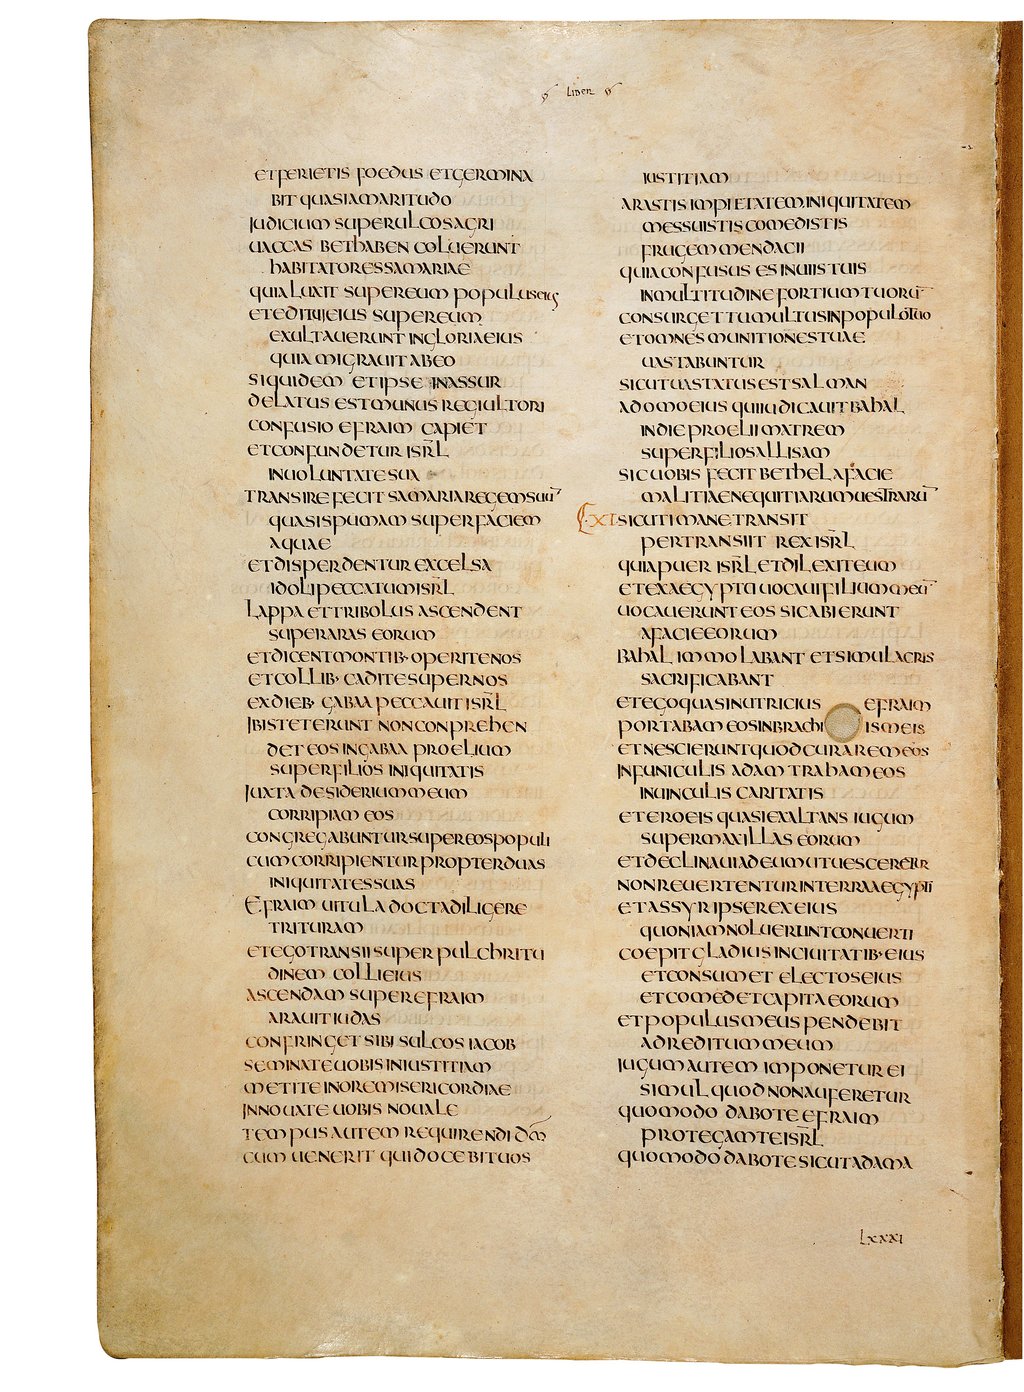 LIBER
ET FERIETIS FOEDUS ET GERMINA
BIT QUASI AMARITUDO
IUDICIUM SUPER ULCOS AGRI
UACCAS BETHABEN COLUERUNT
HABITATORES SAMARIAE
QUIA LUXIT SUPER EUM POPULUS EIUS
ET EDITUI EIUS SUPER EUM
EXULTAUERUNT IN GLORIA EIUS
QUIA MIGRAUIT AB EO
SIQUIDEM ET IPSE IN ASSUR
DELATUS EST MUNUS REGI ULTORI
CONFUSIO EFRAIM CAPIET
ET CONFUNDETUR ISRL
IN UOLUNTATE SUA
TRANSIRE FECIT SAMARIA REGEM SUŪ
QUASI SPUMAM SUPER FACIEM
AQUAE
ET DISPERDENTUR EXCELSA
IDOLI PECCATUM ISRL
LAPPA ET TRIBOLUS ASCENDENT
SUPER ARAS EORUM
ET DICENT MONTIB· OPERITE NOS
ET COLLIB· CADITE SUPER NOS
EX DIEB· GABAA PECCAUIT ISRL
IBI STETERUNT NON CONPREHEN
DET EOS IN GABAA PROELIUM
SUPER FILIOS INIQUITATIS
IUXTA DESIDERIUM MEUM
CORRIPIAM EOS
CONGREGABUNTUR SUPER EOS POPULI
CUM CORRIPIENTUR PROPTER DUAS
INIQUITATES SUAS
EFRAIM UITULA DOCTA DILIGERE
TRITURAM
ET EGO TRANSII SUPER PULCHRITU
DINEM COLLI EIUS
ASCENDAM SUPER EFRAIM
ARAUIT IUDAS
CONFRINGET SIBI SULCOS IACOB
SEMINATE UOBIS IN IUSTITIAM
METITE IN ORE MISERICORDIAE
INNOUATE UOBIS NOUALE
TEMPUS AUTEM REQUIRENDI DM̄
CUM UENERIT QUI DOCEBIT UOS
IUSTITIAM
ARASTIS IMPIETATEM INIQUITATEM
MESSUISTIS COMEDISTIS
FRUGEM MENDACII
QUIA CONFUSUS ES IN UIIS TUIS
IN MULTITUDINE FORTIUM TUORŪ
CONSURGET TUMULTUS IN POPULO TUO
ET OMNES MUNITIONES TUAE
UASTABUNTUR
SICUT UASTATUS EST SALMAN
A DOMO EIUS QUI IUDICAUIT BAHAL
IN DIE PROELII MATREM
SUPER FILIOS ALLISAM
SIC UOBIS FECIT BETHEL A FACIE
MALITIAE NEQUITIARUM UESTRARŪ
XI SICUTI MANE TRANSIT
PERTRANSIIT REX ISRL
QUIA PUER ISRL ET DILEXI EUM
ET EX AEGYPTO UOCAUI FILIUM MEŪ
UOCAUERUNT EOS SIC ABIERUNT
A FACIE EORUM
BAHAL IMMOLABANT ET SIMULACRIS
SACRIFICABANT
ET EGO QUASI NUTRICIUS EFRAIM
PORTABAM EOS IN BRACHIIS MEIS
ET NESCIERUNT QUOD CURAREM EOS
IN FUNICULIS ADAM TRAHAM EOS
IN UINCULIS CARITATIS
ET ERO EIS QUASI EXALTANS IUGUM
SUPER MAXILLAS EORUM
ET DECLINAUI AD EUM UT UESCERETUR
NON REUERTENTUR IN TERRA AEGYPTI
ET ASSYR IPSE REX EIUS
QUONIAM NOLUERUNT CONUERTI
COEPIT GLADIUS IN CIUITATIB· EIUS
ET CONSUMET ELECTOS EIUS
ET COMEDET CAPITA EORUM
ET POPULUS MEUS PENDEBIT
AD REDITUM MEUM
IUGUM AUTEM IMPONETUR EI
SIMUL QUOD NON AUFERETUR
QUOMODO DABO TE EFRAIM
PROTEGAM TE ISRL
QUOMODO DABO TE SICUT ADAMA
LXXXI